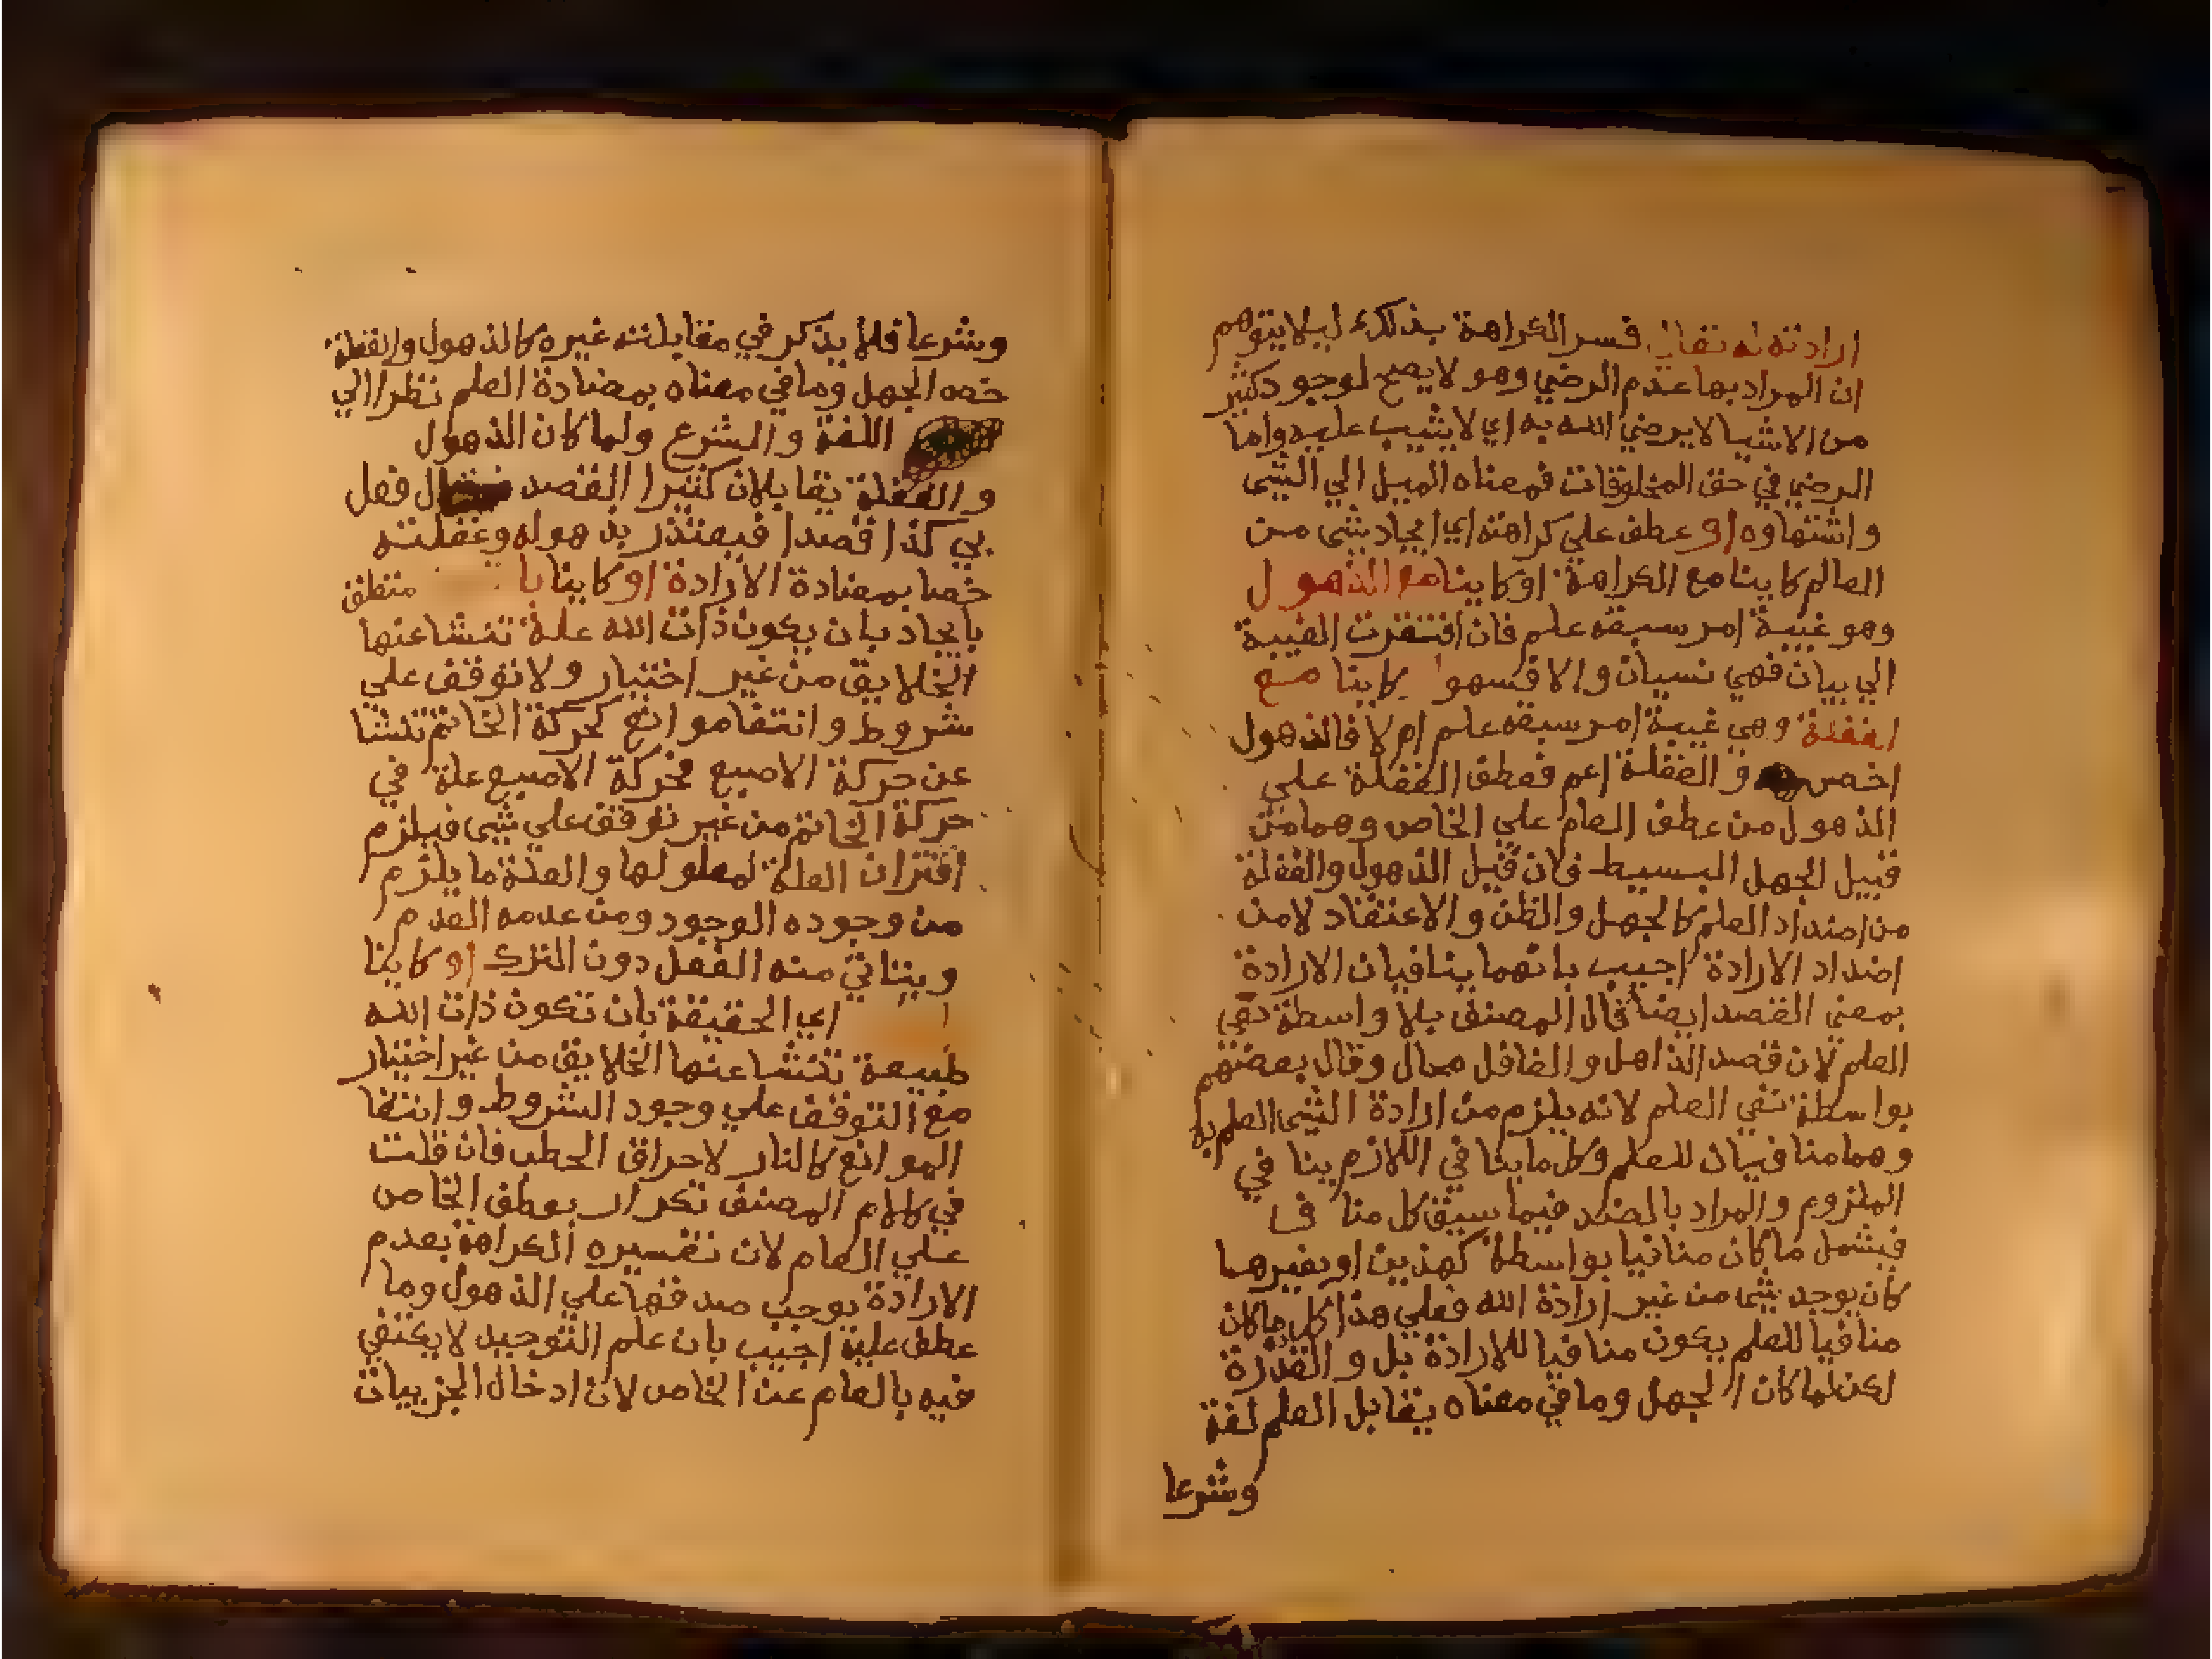 ارادته له تعالي فسر الكراهة بذلك ليلا يتوهم
ان المراد بها عدم الرضي وهو لا يصح لوجود كثير
من الاشيا لا يرضي الله به اي لا يثيب عليه واما
الرضي في حق المخلوقات فمعناه الميل الي الشي
واشتهاوه او عطف علي كراهته اي ايجاد شي من
العالم كاينا مع الكراهة او كاينا مع الذهول
وهو غيبة امر سبقه علم فان افتقرت الغيبة
الي بيان فهي نسيان والا فسهو كاينا مع
الغفلة وهي غيبة امر سبقه علم ام لا فالذهول
اخص والغفلة اعم فعطف الغفلة علي
الذهول من عطف العام علي الخاص وهما من
قبيل الجهل البسيط فان قيل الذهول والغفلة
من اضداد العلم كالجهل والظن والاعتقاد لا من
اضداد الارادة اجيب بانهما ينافيان الارادة
بمعني القصد ايضا قال المصنف بلا واسطة نفي
العلم لان قصد الذاهل والغافل محال وقال بعضهم
بواسطة نفي العلم لانه يلزم من ارادة الشي العلم به
وهما منافيان للعلم وكل ما ينافي اللازم ينافي
الملزوم والمراد بالضد فيما سبق كل مناف
فيشمل ما كان منافيا بواسطة كهذين او بغيرها
كان يوجد شي من غير ارادة الله فعلي هذا كل ما كان
منافيا للعلم يكون منافيا للارادة بل والقدرة
لكن لما كان الجهل وما في معناه يقابل العلم لغة
وشرعا
وشرعا فلا يذكر في مقابلته غيره كالذهول والغفلة
خصه الجهل وما في معناه بمضادة العلم نظرا الي
اللغة والشرع ولما كان الذهول
والغفلة يقابلان كثيرا القصد فعل
بي كذا قصدا فيعتذر بذهوله وغفلته
خصا بمضادة الارادة او كاينا با منطلق
بايجاد بان يكون ذات الله علة تنشا عنها
الخلايق من غير اختيار ولا توقف علي
شروط وانتفا موانع كحركة الخاتم تنشا
عن حركة الاصبع فحركة الاصبع علة في
حركة الخاتم من غير توقف علي شي فيلزم
اقتران العلة لمعلولها والعلة ما يلزم
من وجوده الوجود ومن عدمه العدم
ويتاتي منه الفعل دون الترك او كاينا
اي الحقيقة بان تكون ذات الله
طبيعة تنشا عنها الخلايق من غير اختيار
مع التوقف علي وجود الشروط وانتفا
الموانع كالنار لاحراق الحطب فان قلت
في كلام المصنف تكرار بعطف الخاص
علي العام لان تفسيره الكراهة بعدم
الارادة يوجب صدقها علي الذهول وما
عطف عليه اجيب بان علم التوحيد لا يكتفي
فيه بالعام عن الخاص لان ادخال الجزييات